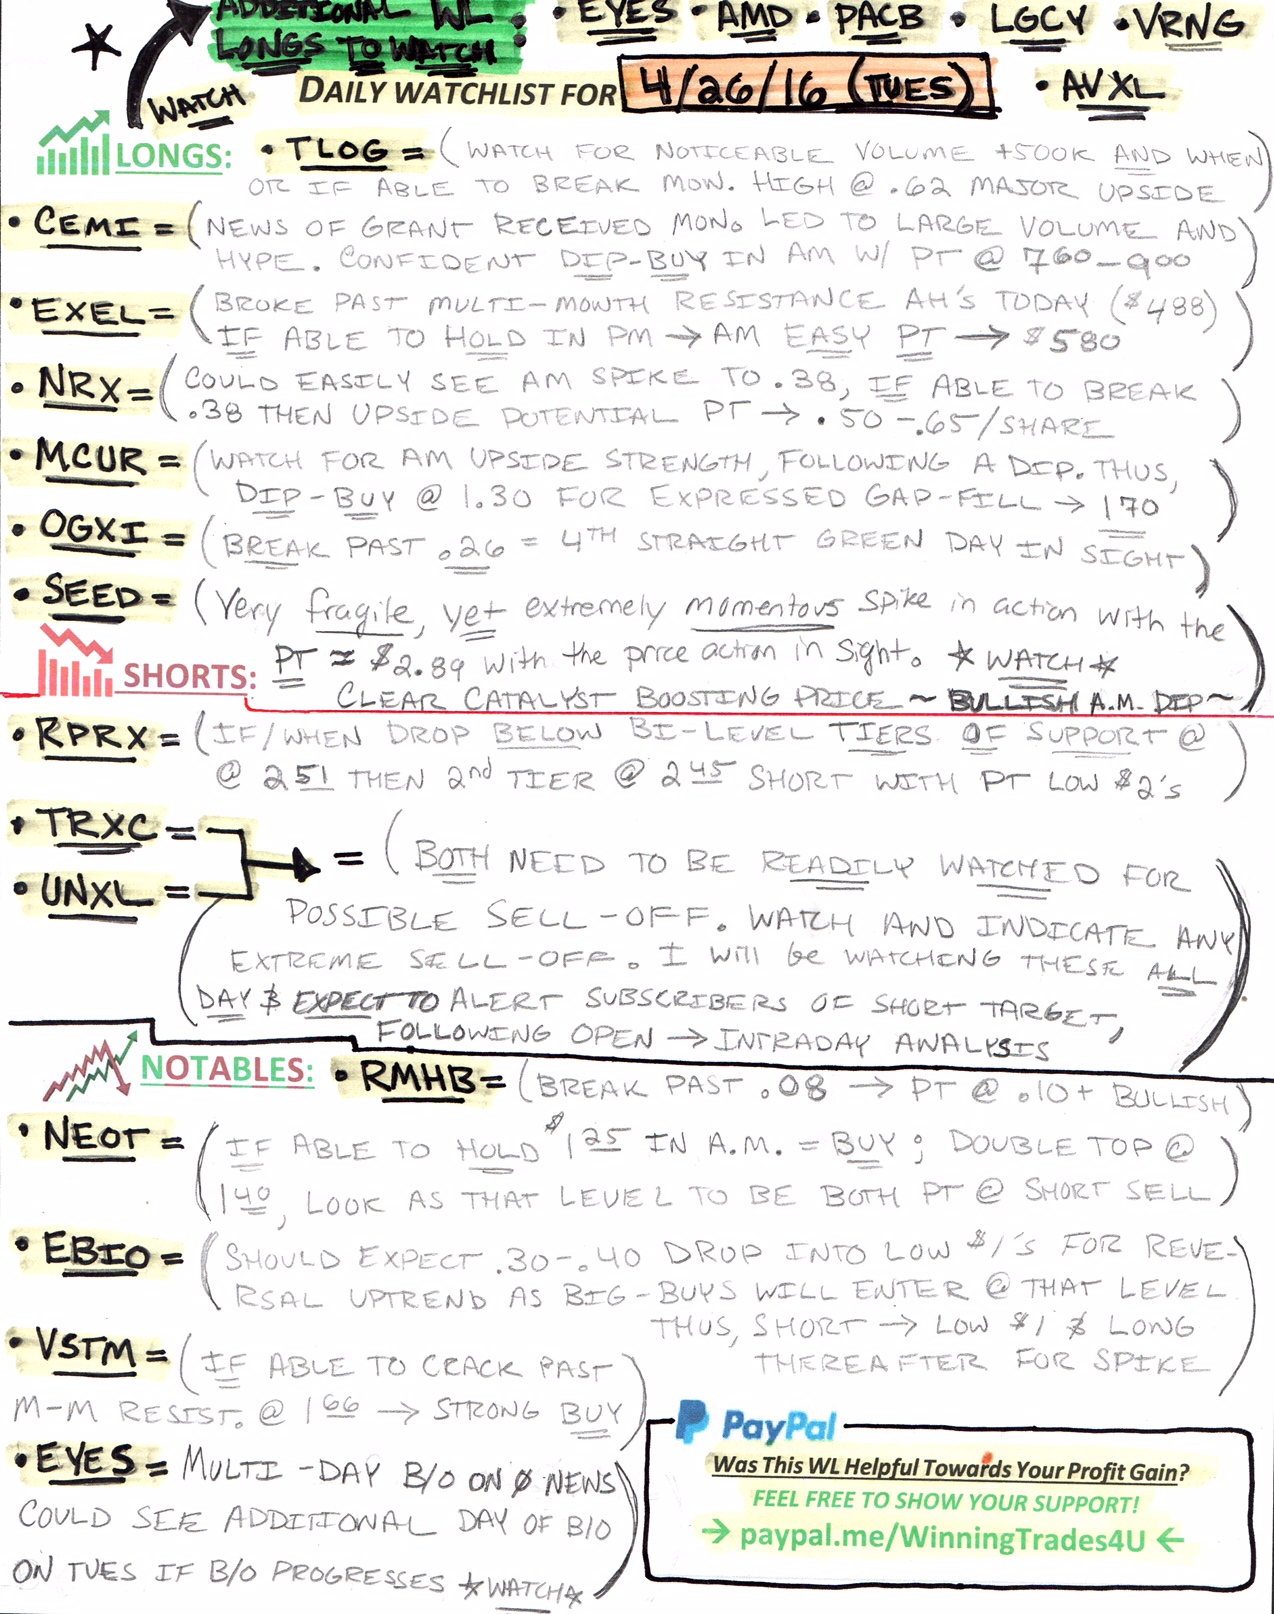 ADDITIONAL WL : • EYES • AMD • PACB • LGCY • VRNG
LONGS TO WATCH :
WATCH DAILY WATCHLIST FOR 4/26/16 (TUES) • AVXL
LONGS: • TLOG = (WATCH FOR NOTICEABLE VOLUME +500K AND WHEN
OR IF ABLE TO BREAK MON. HIGH @ .62 MAJOR UPSIDE)
• CEMI = (NEWS OF GRANT RECEIVED MON. LED TO LARGE VOLUME AND
HYPE. CONFIDENT DIP-BUY IN AM W/ PT @ 760-900)
• EXEL = (BROKE PAST MULTI-MONTH RESISTANCE AH'S TODAY ($488)
IF ABLE TO HOLD IN PM → AM EASY PT → $580)
• NRX = (COULD EASILY SEE AM SPIKE TO .38, IF ABLE TO BREAK
.38 THEN UPSIDE POTENTIAL PT → .50-.65/SHARE)
• MCUR = (WATCH FOR AM UPSIDE STRENGTH, FOLLOWING A DIP. THUS,
DIP-BUY @ 1.30 FOR EXPRESSED GAP-FILL → 170)
• OGXI = (BREAK PAST .26 = 4TH STRAIGHT GREEN DAY IN SIGHT)
• SEED = (Very fragile, yet extremely momentous spike in action with the
PT ≈ $2.89 with the price action in sight. *WATCH*
SHORTS: CLEAR CATALYST BOOSTING PRICE ~ BULLISH A.M. DIP~)
• RPRX = (IF/WHEN DROP BELOW BI-LEVEL TIERS OF SUPPORT @
@ 251 THEN 2nd TIER @ 245 SHORT WITH PT LOW $2's)
• TRXC =
• UNXL = = (BOTH NEED TO BE READILY WATCHED FOR
POSSIBLE SELL-OFF. WATCH AND INDICATE ANY
EXTREME SELL-OFF. I will be WATCHING THESE ALL
DAY & EXPECT TO ALERT SUBSCRIBERS OF SHORT TARGET,
FOLLOWING OPEN → INTRADAY ANALYSIS)
NOTABLES: • RMHB = (BREAK PAST .08 → PT @ .10+ BULLISH)
• NEOT = (IF ABLE TO HOLD $125 IN A.M. = BUY; DOUBLE TOP @
140, LOOK AS THAT LEVEL TO BE BOTH PT @ SHORT SELL)
• EBIO = (SHOULD EXPECT .30-.40 DROP INTO LOW $1's FOR REVE-
RSAL UPTREND AS BIG-BUYS WILL ENTER @ THAT LEVEL
THUS, SHORT → LOW $1 & LONG
THEREAFTER FOR SPIKE)
• VSTM = (IF ABLE TO CRACK PAST
M-M RESIST. @ 166 → STRONG BUY)
• EYES = MULTI-DAY B/O ON Ø NEWS
COULD SEE ADDITIONAL DAY OF B/O
ON TUES IF B/O PROGRESSES *WATCH*)
PayPal
Was This WL Helpful Towards Your Profit Gain?
FEEL FREE TO SHOW YOUR SUPPORT!
→ paypal.me/WinningTrades4U ←